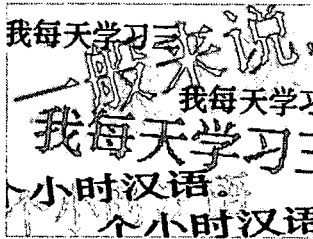 我每天学习三
一般来说，
我每天学习
我每天学习三
个小时汉语。
个小时汉语